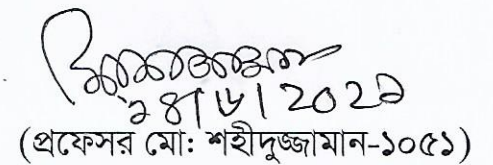 ১৪|৬|২০২১
(প্রফেসর মো: শহীদুজ্জামান-১০৫১)